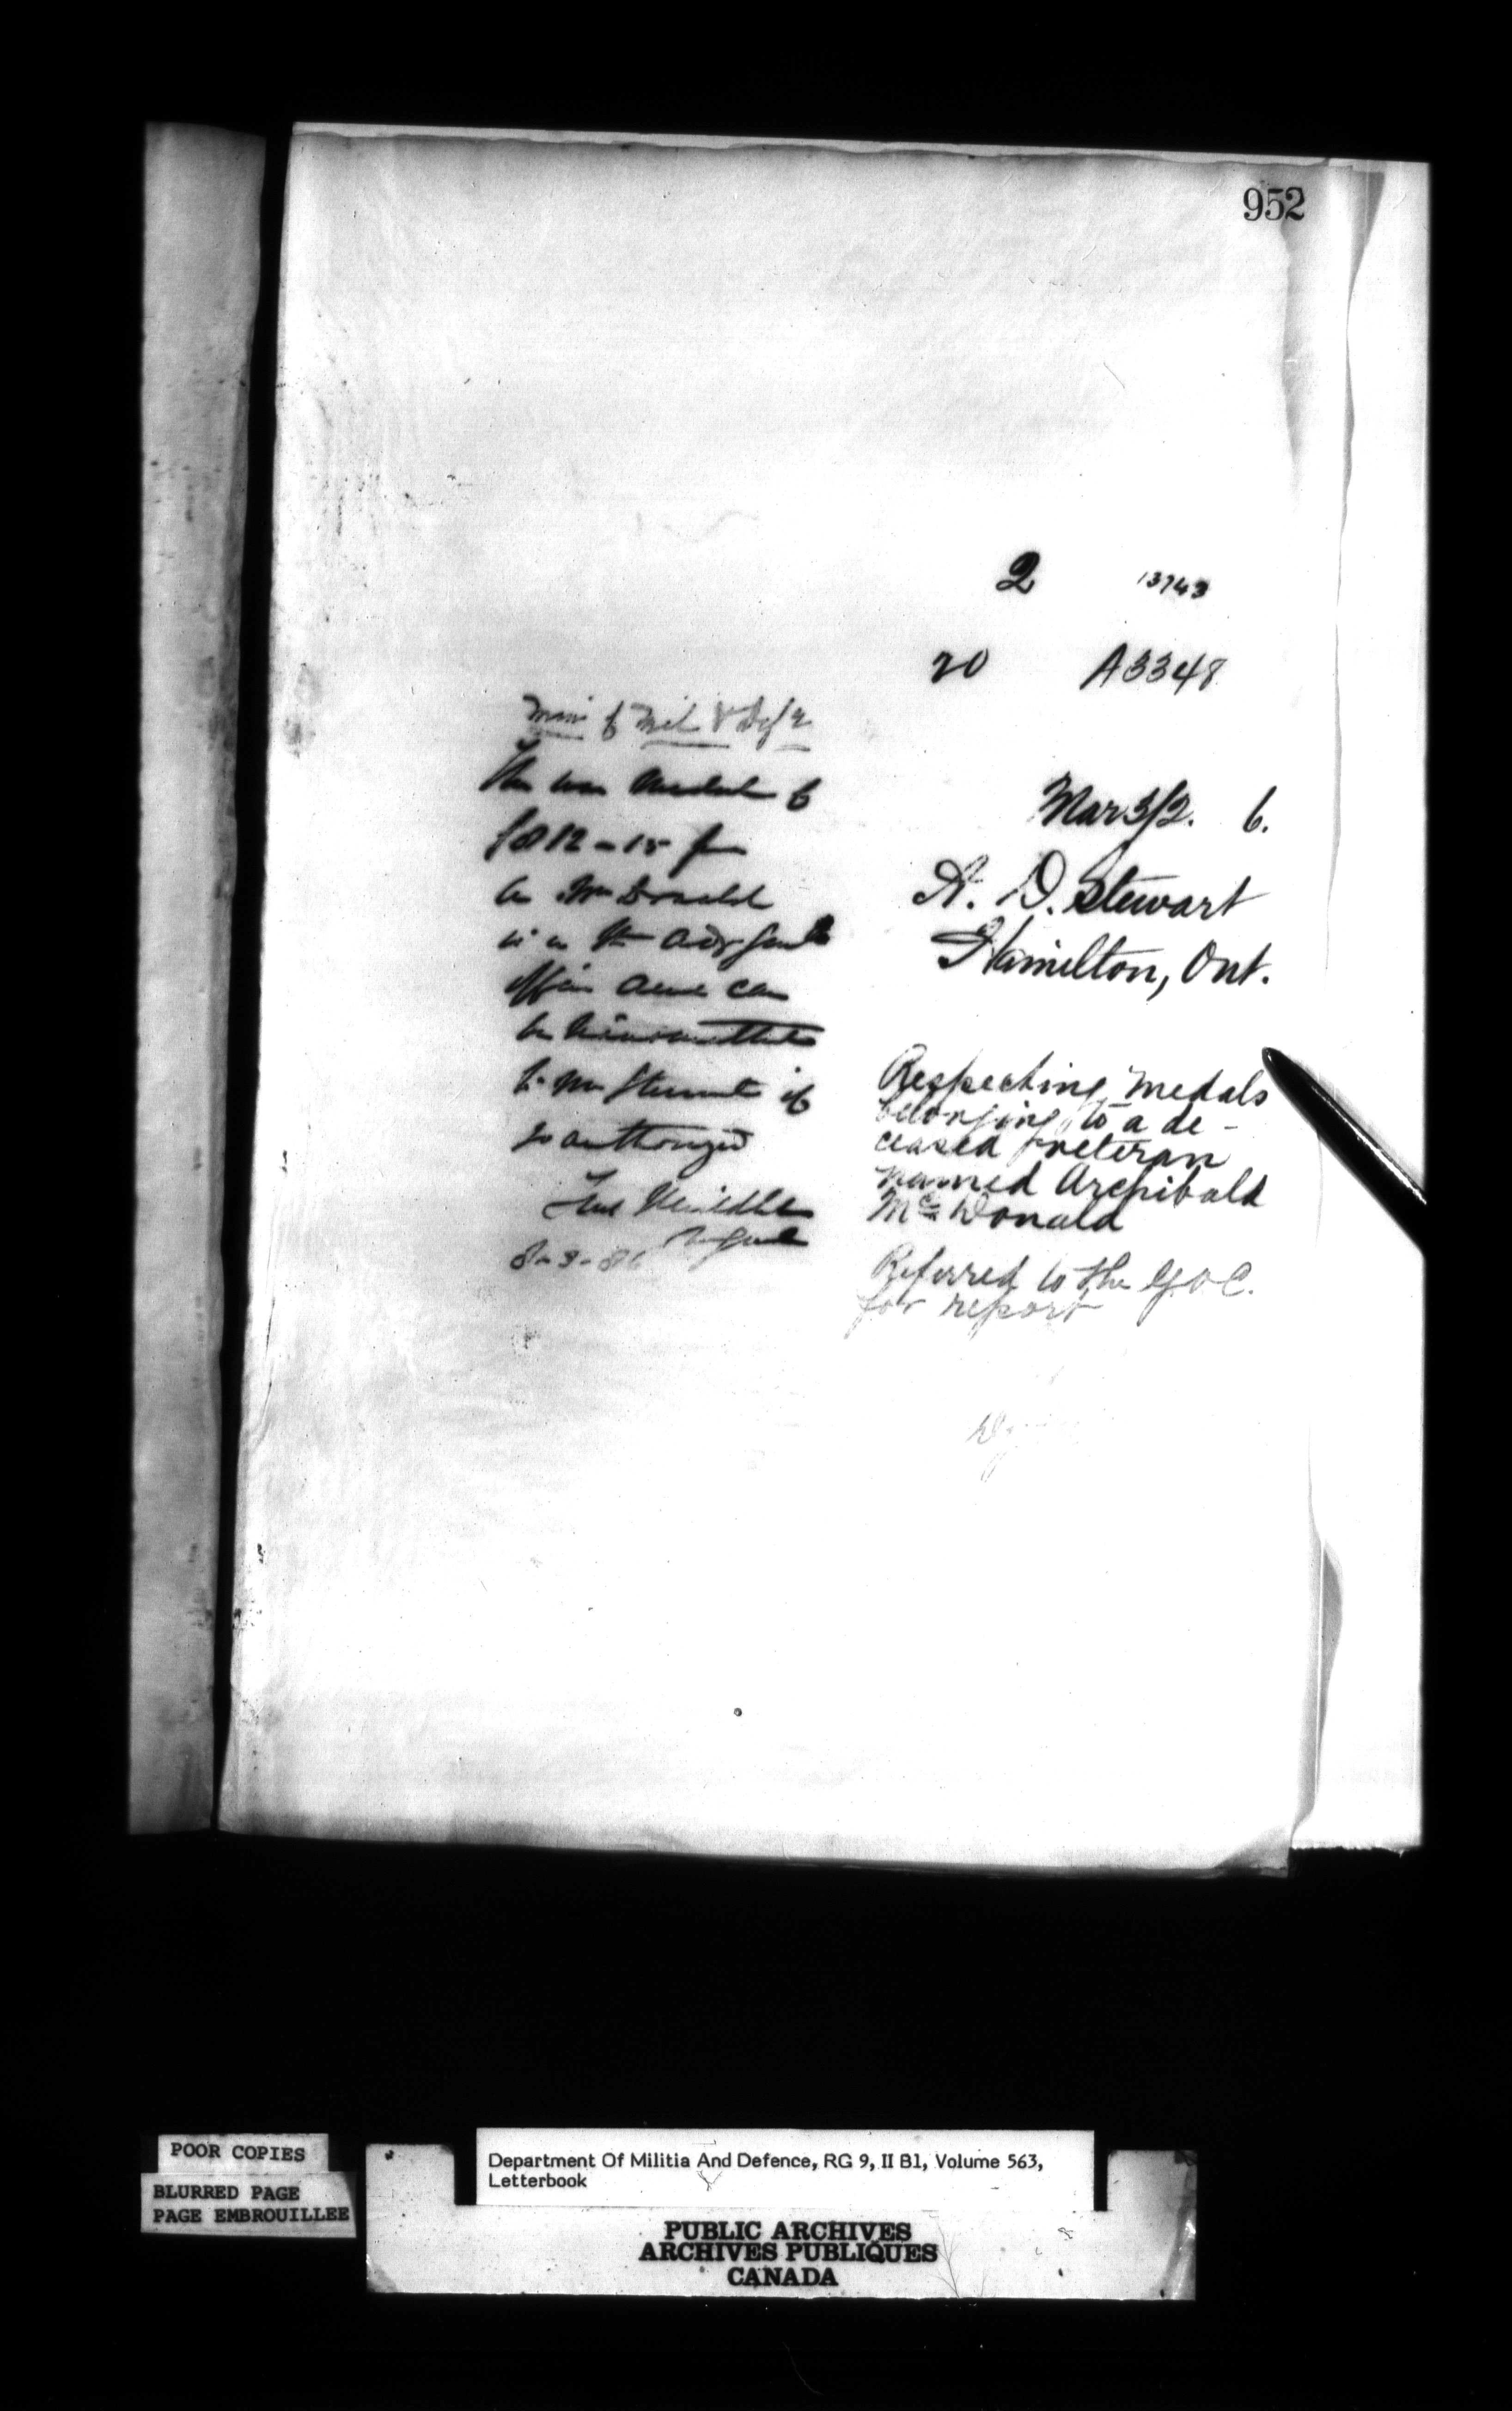 952
2 13743
20 A3348
Min of Mil & Def
The war Medal of
1812-15 for
A McDonald
is in the Adjt Genls
Office and can
be transmitted
to Mr Stewart if
so authorized
Fred Middleton
M Genl
8-3-86
Mar 3/2. 6.
A. D. Stewart
Hamilton, Ont.
Respecting Medals
belonging to a de-
ceased veteran
named Archibald
Mc Donald
Referred to the G.O.C.
for report
POOR COPIES
BLURRED PAGE
PAGE EMBROUILLEE
Department Of Militia And Defence, RG 9, II B1, Volume 563,
Letterbook
PUBLIC ARCHIVES
ARCHIVES PUBLIQUES
CANADA